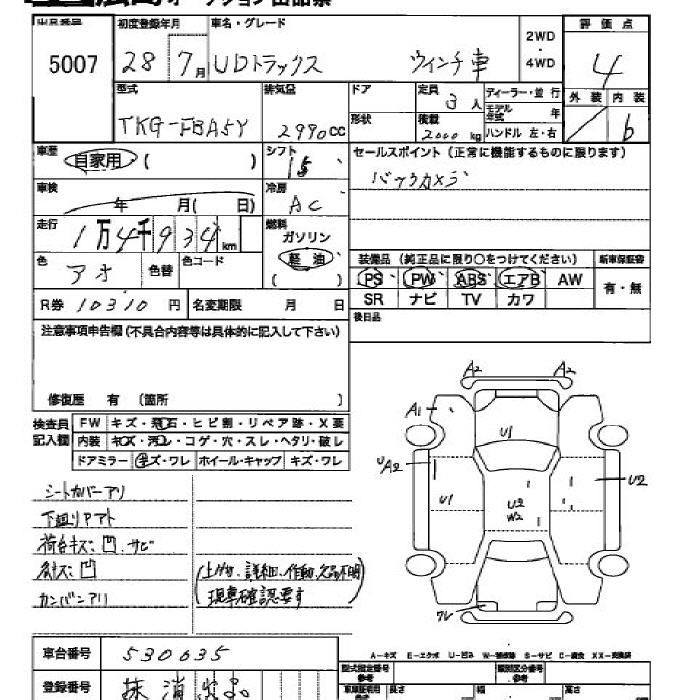 オークション出品票
出品番号 初度登録年月 車名・グレード 2WD・4WD 評価点
5007 28年 7月 UDトラックス ウィンチ車 4
外装 内装
6
型式 排気量 ドア 定員 3人 ディーラー・並行
TKG-FBA5Y 2990cc 形状 積載 2000kg モデル年式 年
ハンドル 左・右
車歴 自家用 ( ) シフト 15 セールスポイント (正常に機能するものに限ります)
バックカメラ
車検 年 月( 日) 冷房 AC
走行 1万4千934km 燃料 ガソリン 軽油 ( )
色 アオ 色替 色コード
装備品 (純正品に限り○をつけてください) 新車保証書
PS PW ABS エアB AW 有・無
SR ナビ TV カワ
R券 10310円 名変期限 月 日
後日品
注意事項申告欄(不具合内容等は具体的に記入して下さい)
修復歴 有 (箇所 )
検査員記入欄 FW キズ・飛石・ヒビ割・リペア跡・X要
内装 キズ・汚レ・コゲ・穴・スレ・ヘタリ・破レ
ドアミラー キズ・ワレ ホイール・キャップ キズ・ワレ
シートカバーアリ
下廻りアト
荷台キズ凹.サビ
凹
カンバンアリ
(上物、詳細、作動、欠品不明
現車確認要す)
A2 A2
A1
U1
UA2
U1 U2 W2 U2
ワレ
A-キズ E-エクボ U-凹み W-補修跡 S-サビ C-腐食 XX-交換済
車台番号 530635
登録番号 抹消
型式指定番号 参考 類別区分番号 参考
長さ 幅 高さ